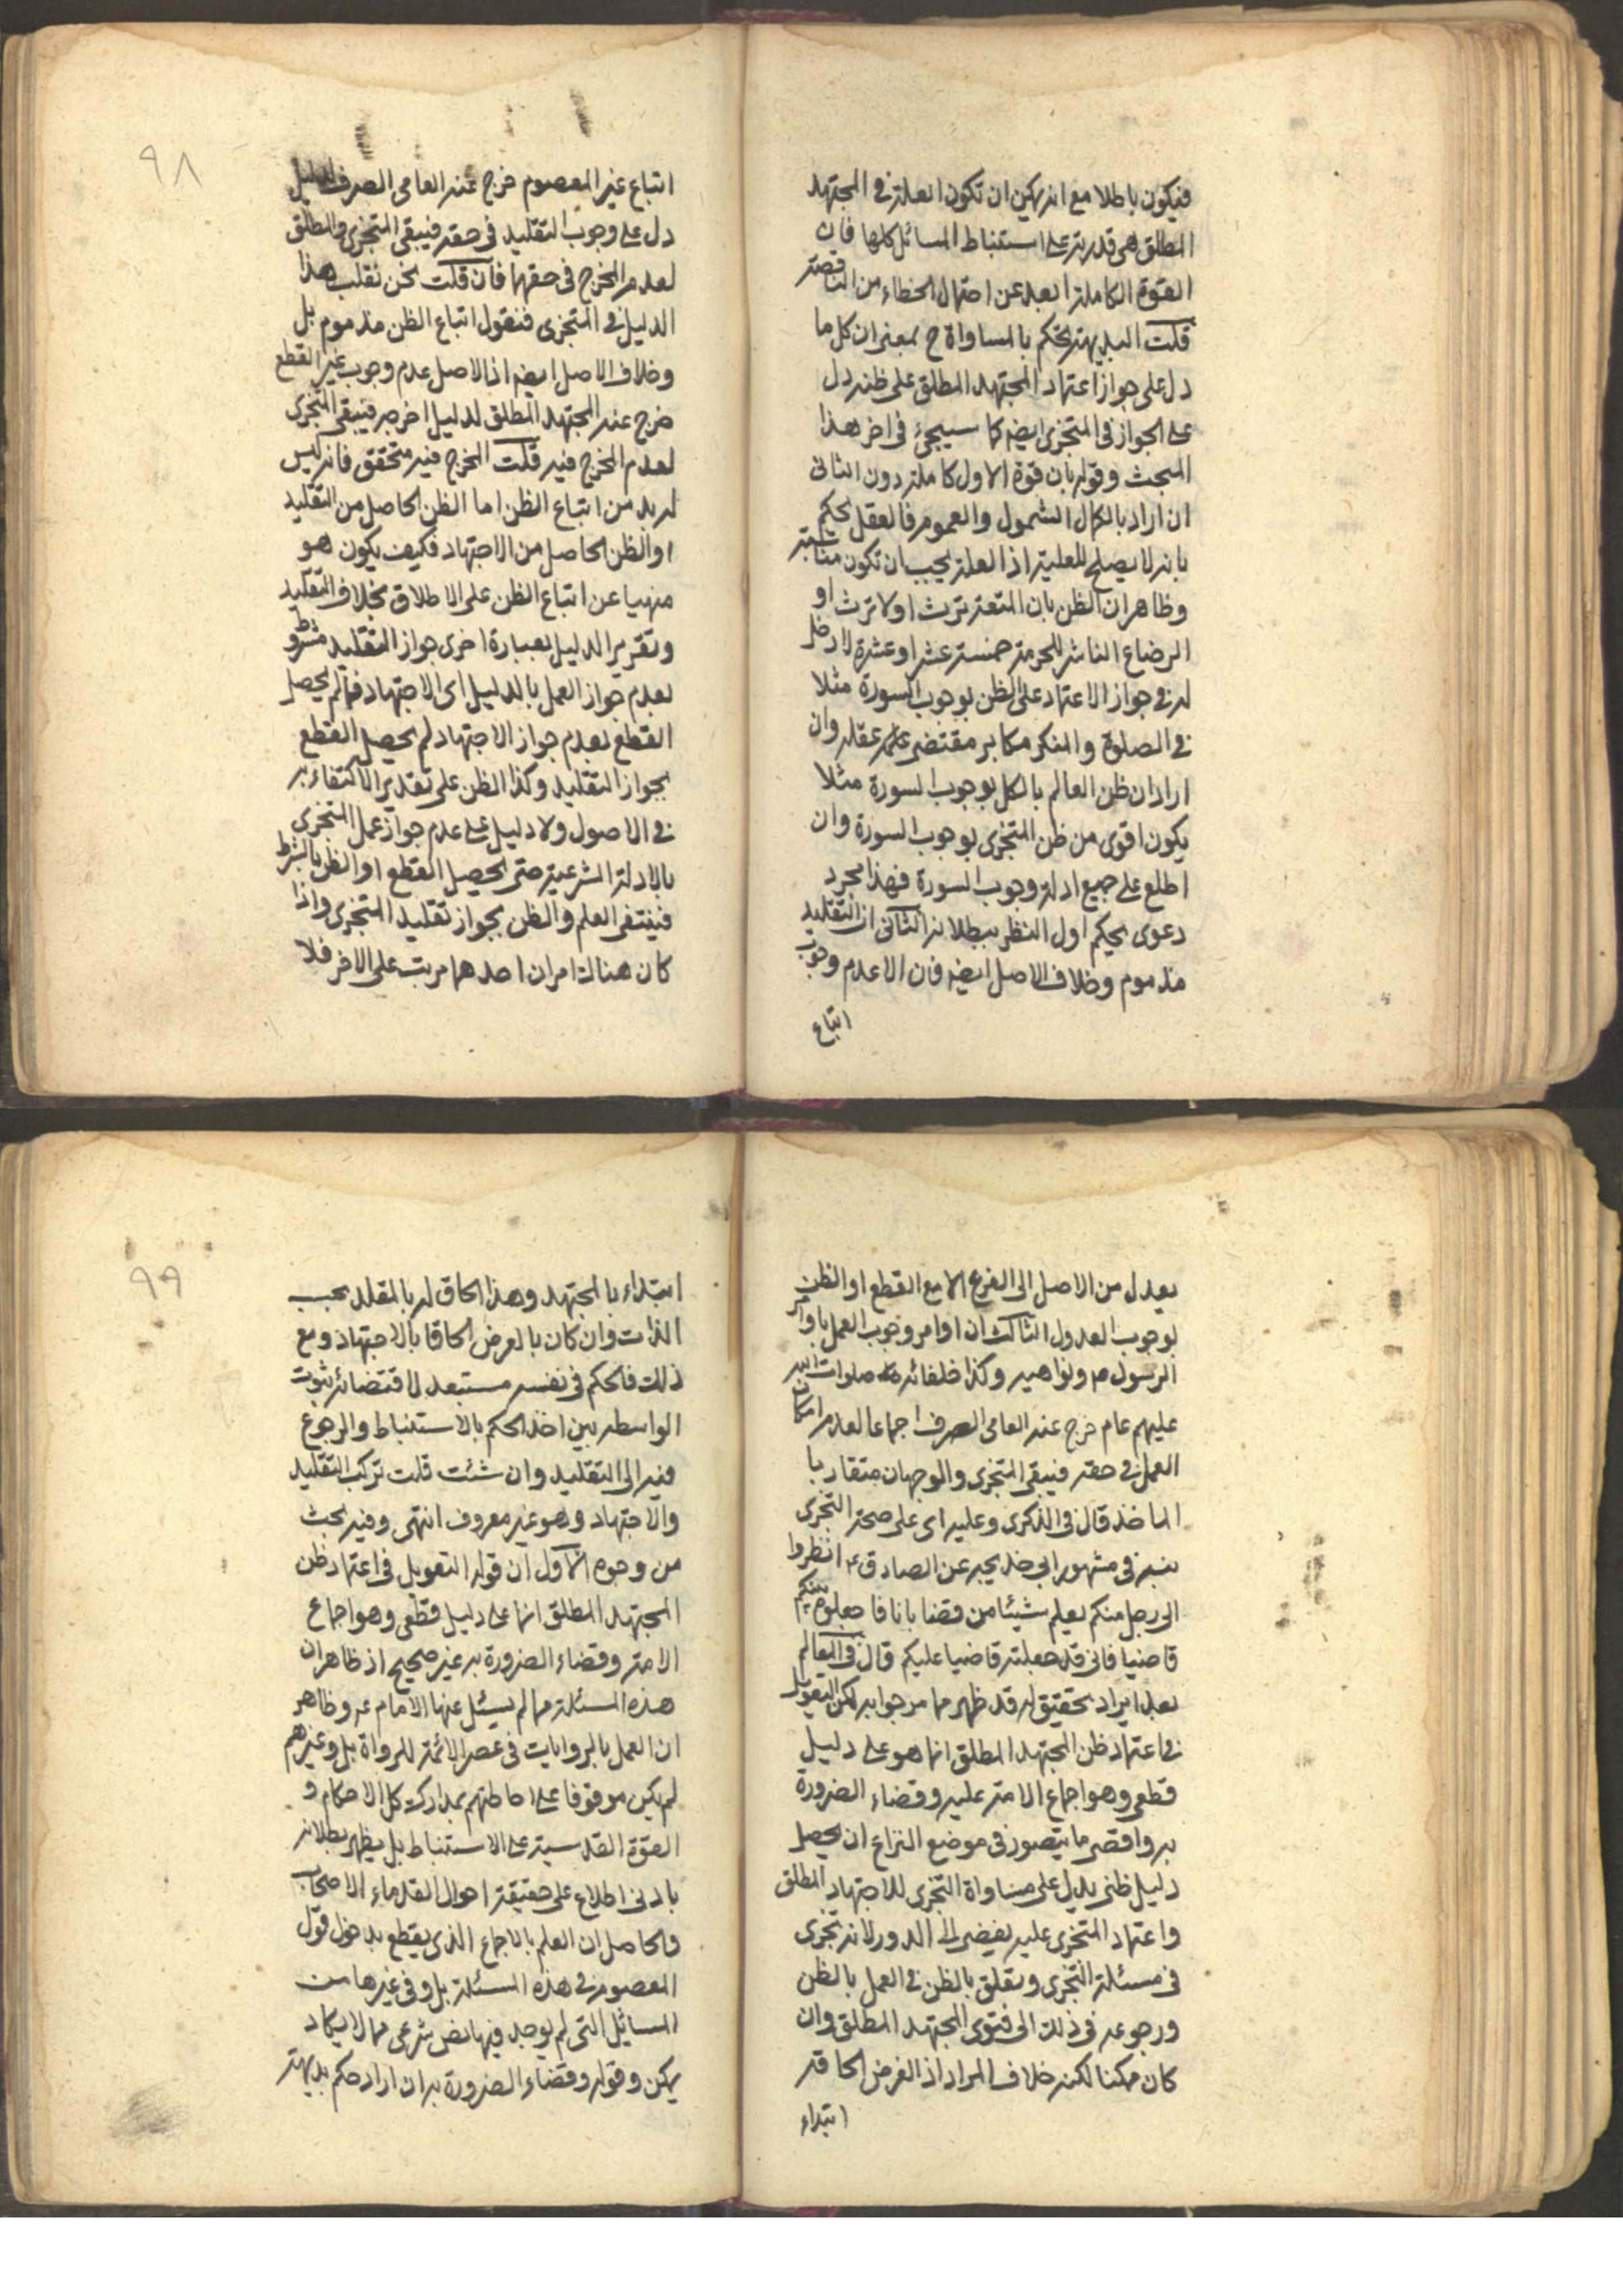 فيكون باطلا مع انه يمكن ان تكون العلة في المجتهد
المطلق هي قدرته على استنباط المسائل كلها فان
القوة الكاملة ابعد عن احتمال الخطاء من الناقصة
قلت البديهة تحكم بالمساواة ح بمعنى ان كل ما
دل على جواز اعتماد المجتهد المطلق على ظنه دل
على الجواز في المتجزى ايضه كما سيجئ في اخر هذا
المبحث وقوله بان قوة الاول كاملة دون الثانى
ان اراد بالكمال الشمول والعموم فالعقل يحكم
بانه لا يصلح للعلية اذ العلة يجب ان تكون مناسبة
وظاهر ان الظن بان المتعة ترث او لا ترث او
الرضاع الناشر للحرمة خمسة عشر او عشرة لا دخل
له في جواز الاعتماد على الظن بوجوب السورة مثلا
في الصلوة والمنكر مكابر مقتضى عقله وان
اراد ان ظن العالم بالكل بوجوب السورة مثلا
يكون اقوى من ظن المتجزى بوجوب السورة وان
اطلع على جميع ادلة وجوب السورة فهذا مجرد
دعوى يحكم اول النظر ببطلانه الثانى ان التقليد
مذموم وخلاف الاصل ايضه فان الا عدم وجوب
اتباع
٩٨
اتباع غير المعصوم خرج عنه العامى الصرف لدليل
دل على وجوب التقليد فى حقه فيبقى المتجزى والمطلق
لعدم المخرج فى حقهما فان قلت نحن نقلب هذا
الدليل في المتجزى فنقول اتباع الظن مذموم بل
وخلاف الاصل ايضه اذ الاصل عدم وجوب غير القطع
خرج عنه المجتهد المطلق لدليل اخرجه فيبقى المتجزى
لعدم المخرج فيه قلت المخرج فيه متحقق فانه ليس
له بد من اتباع الظن اما الظن الحاصل من التقليد
او الظن الحاصل من الاجتهاد فكيف يكون هو
منهيا عن اتباع الظن على الاطلاق بخلاف التقليد
وتقرير الدليل بعبارة اخرى جواز التقليد مشروط
بعدم جواز العمل بالدليل اى الاجتهاد فما لم يحصل
القطع بعدم جواز الاجتهاد لم يحصل القطع
بجواز التقليد وكذا الظن على تقدير الاكتفاء به
في الاصول ولا دليل على عدم جواز عمل المتجزى
بالادلة الشرعية حتى يحصل القطع او الظن بالشرط
فينتفى العلم والظن بجواز تقليد المتجزى واذا
كان هناك امران احدهما مرتب على الاخر فلا
يعدل من الاصل الى الفرع الا مع القطع او الظن
بوجوب العدول الثالث ان اوامر وجوب العمل باوامر
الرسول ص ونواهيه وكذا خلفائه صلوات الله
عليهم عام خرج عنه العامى الصرف اجماعا لعدم امكان
العمل في حقه فيبقى المتجزى والوجهان متقاربا
الماخذ قال في الذكرى وعليه اى على صحة التجزى
نبه في مشهور ابى خديجه عن الصادق ع انظروا
الى رجل منكم يعلم شيئا من قضايانا فاجعلوه بينكم
قاضيا فانى قد جعلته قاضيا عليكم قال في المعالم
بعد ايراد تحقيق له قد ظهر مما مر جوابه لكن التعويل
في اعتماد ظن المجتهد المطلق انما هو على دليل
قطعى وهو اجماع الامة عليه وقضاء الضرورة
به واقصى ما يتصور فى موضع النزاع ان يحصل
دليل ظنى يدل على مساواة التجزى للاجتهاد المطلق
واعتماد المتجزى عليه يفضى الى الدور لانه تجزى
فى مسئلة التجزى وتعلق بالظن في العمل بالظن
ورجوعه فى ذلك الى فتوى المجتهد المطلق وان
كان ممكنا لكنه خلاف المراد اذ الفرض الحاقه
ابتداء
٩٩
ابتداء بالمجتهد وهذا الحاق له بالمقلد بحسب
الذات وان كان بالعرض الحاقا بالاجتهاد ومع
ذلك فالحكم فى نفسه مستبعد لاقتضائه ثبوت
الواسطه بين اخذ الحكم بالاستنباط والرجوع
فيه الى التقليد وان شئت قلت تركب التقليد
والاجتهاد وهو غير معروف انتهى وفيه بحث
من وجوه الاول ان قوله التعويل فى اعتماد ظن
المجتهد المطلق انما على دليل قطعى وهو اجماع
الامة وقضاء الضرورة به غير صحيح اذ ظاهر ان
هذه المسئلة مما لم يسئل عنها الامام ع وظاهر
ان العمل بالروايات فى عصر الائمة للرواة بل وغيرهم
لم يكن موقوفا على احاطتهم بمدارك كل الاحكام و
القوة القدسية على الاستنباط بل يظهر بطلانه
بادنى اطلاع على حقيقة احوال القدماء الاصحاب
والحاصل ان العلم بالاجماع الذى يقطع بدخول قول
المعصوم في هذه المسئلة بل وفى غيرها من
المسائل التى لم يوجد فيها نص شرعى مما لا يكاد
يمكن وقوله وقضاء الضرورة به ان اراد حكم بديهة